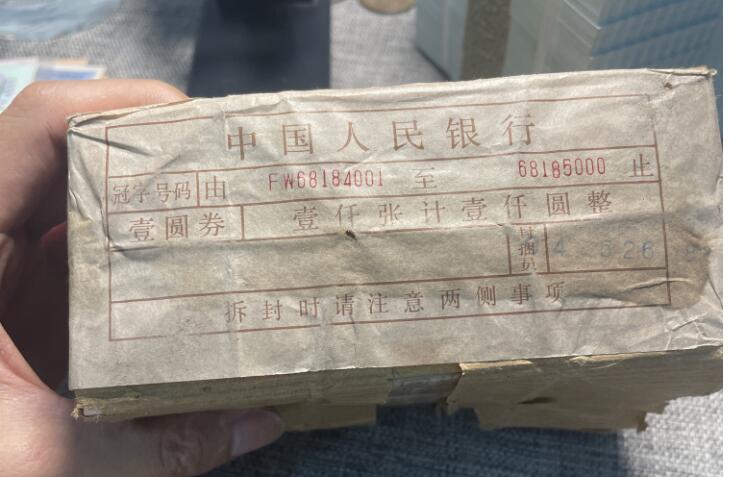 中国人民银行
冠字号码 由 FW68184001 至 68185000 止
壹圆券 壹仟张计壹仟圆整
封捆员 4 526
拆封时请注意两侧事项